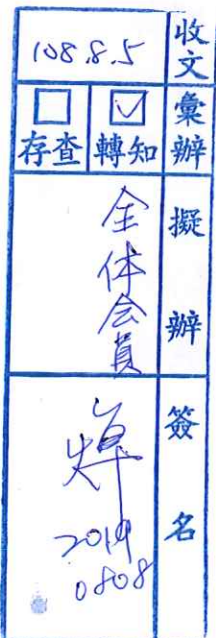 收文
108.8.5
彙辦
☑
轉知
☐
存查
擬辦
全体会員
簽名
2019
0808